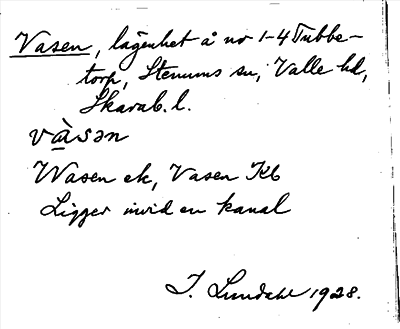 Vasen, lägenhet å nr 1-4 Tubbe-
torp, Stenums sn, Valle hd,
Skarab. l.
vàsən
Wasen ek, Vasen Kb
Ligger invid en kanal
I. Lundahl 1928.